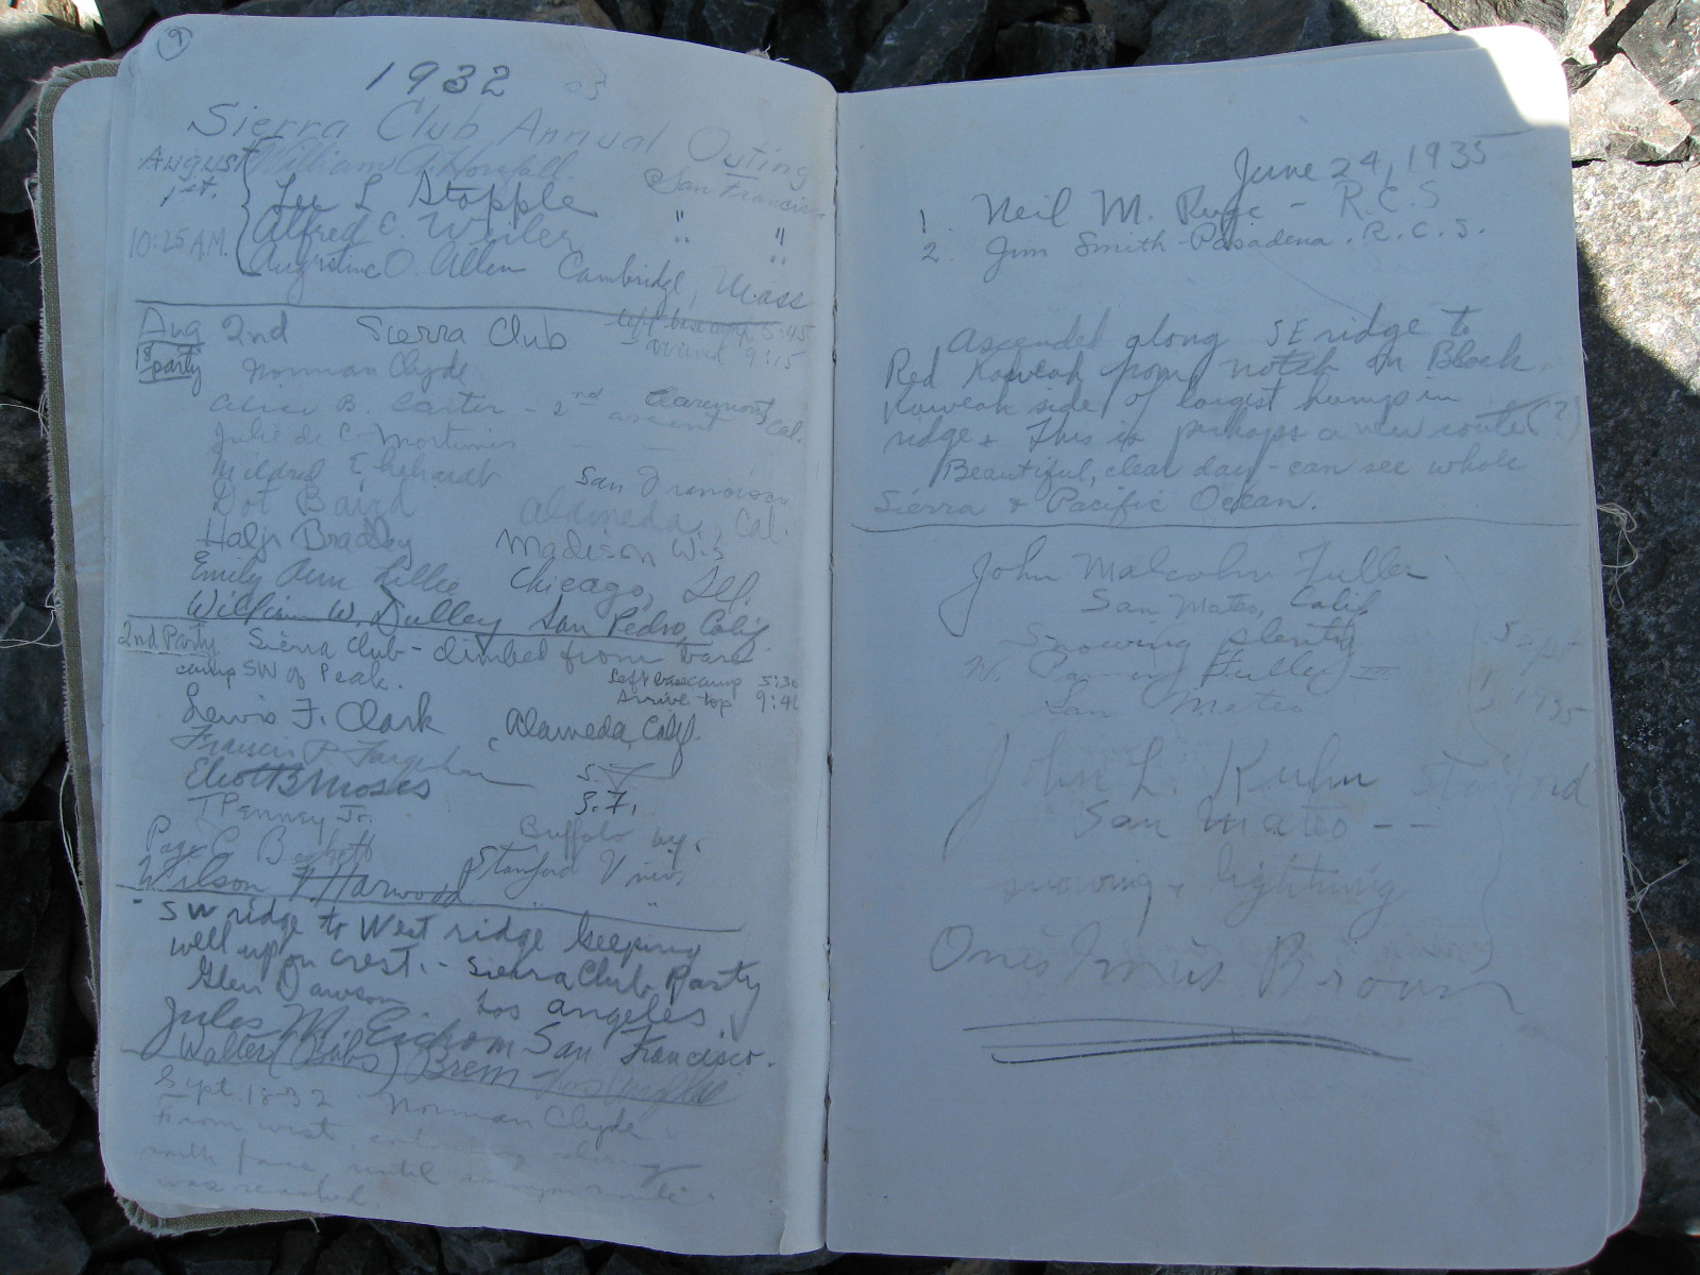 9
1932
Sierra Club Annual Outing
August William A. Horsfall San Francisco
1st. Lee L Stopple " "
10:25 A.M. Alfred C. Weiler " "
Augustine O. Allen Cambridge, Mass
Aug 2nd Sierra Club left base camp 5:45
1st party arrived 9:15
Norman Clyde
Alice B. Carter - 2nd ascent Claremont Cal.
Julie de C. Mortimer
Mildred San Francisco
Dot Baird Alameda, Cal.
Halj Bradley Madison Wis
Emily Ann Lillie Chicago, Ill.
William W. Dulley San Pedro, Calif
2nd Party Sierra Club - climbed from base
camp SW of Peak. Left basecamp 5:30
Arrive top 9:40
Lewis F. Clark Alameda, Calif.
Francis P. Farquhar S.F.
Eliott B Moses S.F.
T Penney Jr. Buffalo NY.
Page C Stanford Univ.
Wilson Harwood " "
SW ridge to West ridge keeping
well up on crest. - Sierra Club Party
Glen Dawson Los Angeles
Jules M. Eichorn San Francisco.
Walter (Bubs) Brem Los Angeles
Sept. 18-32 Norman Clyde
From west, along
north face until
was reached
June 24, 1935
1. Neil M. Ruge - R.C.S
2. Jim Smith - Pasadena. R.C.S.
Ascended along SE ridge to
Red Kaweah from notch on Black
Kaweah side of longest hump in
ridge. This is perhaps a new route (?)
Beautiful, clear day - can see whole
Sierra & Pacific Ocean.
John Malcolm Fuller
San Mateo, Calif
Snowing plenty Sept
W. Fuller III 1
San Mateo 1935
John L. Kuhn Stanford
San Mateo --
snowing & lightning
Brown